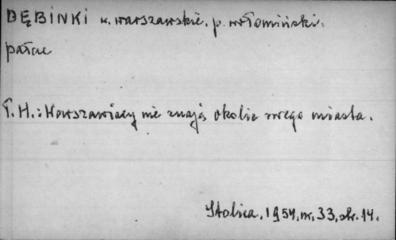 DĘBINKI w. warszawskie. p. wołomiński.
pałac
T. H.: Warszawiacy nie znają okolic swego miasta.
Stolica, 1954, nr, 33, str. 14.